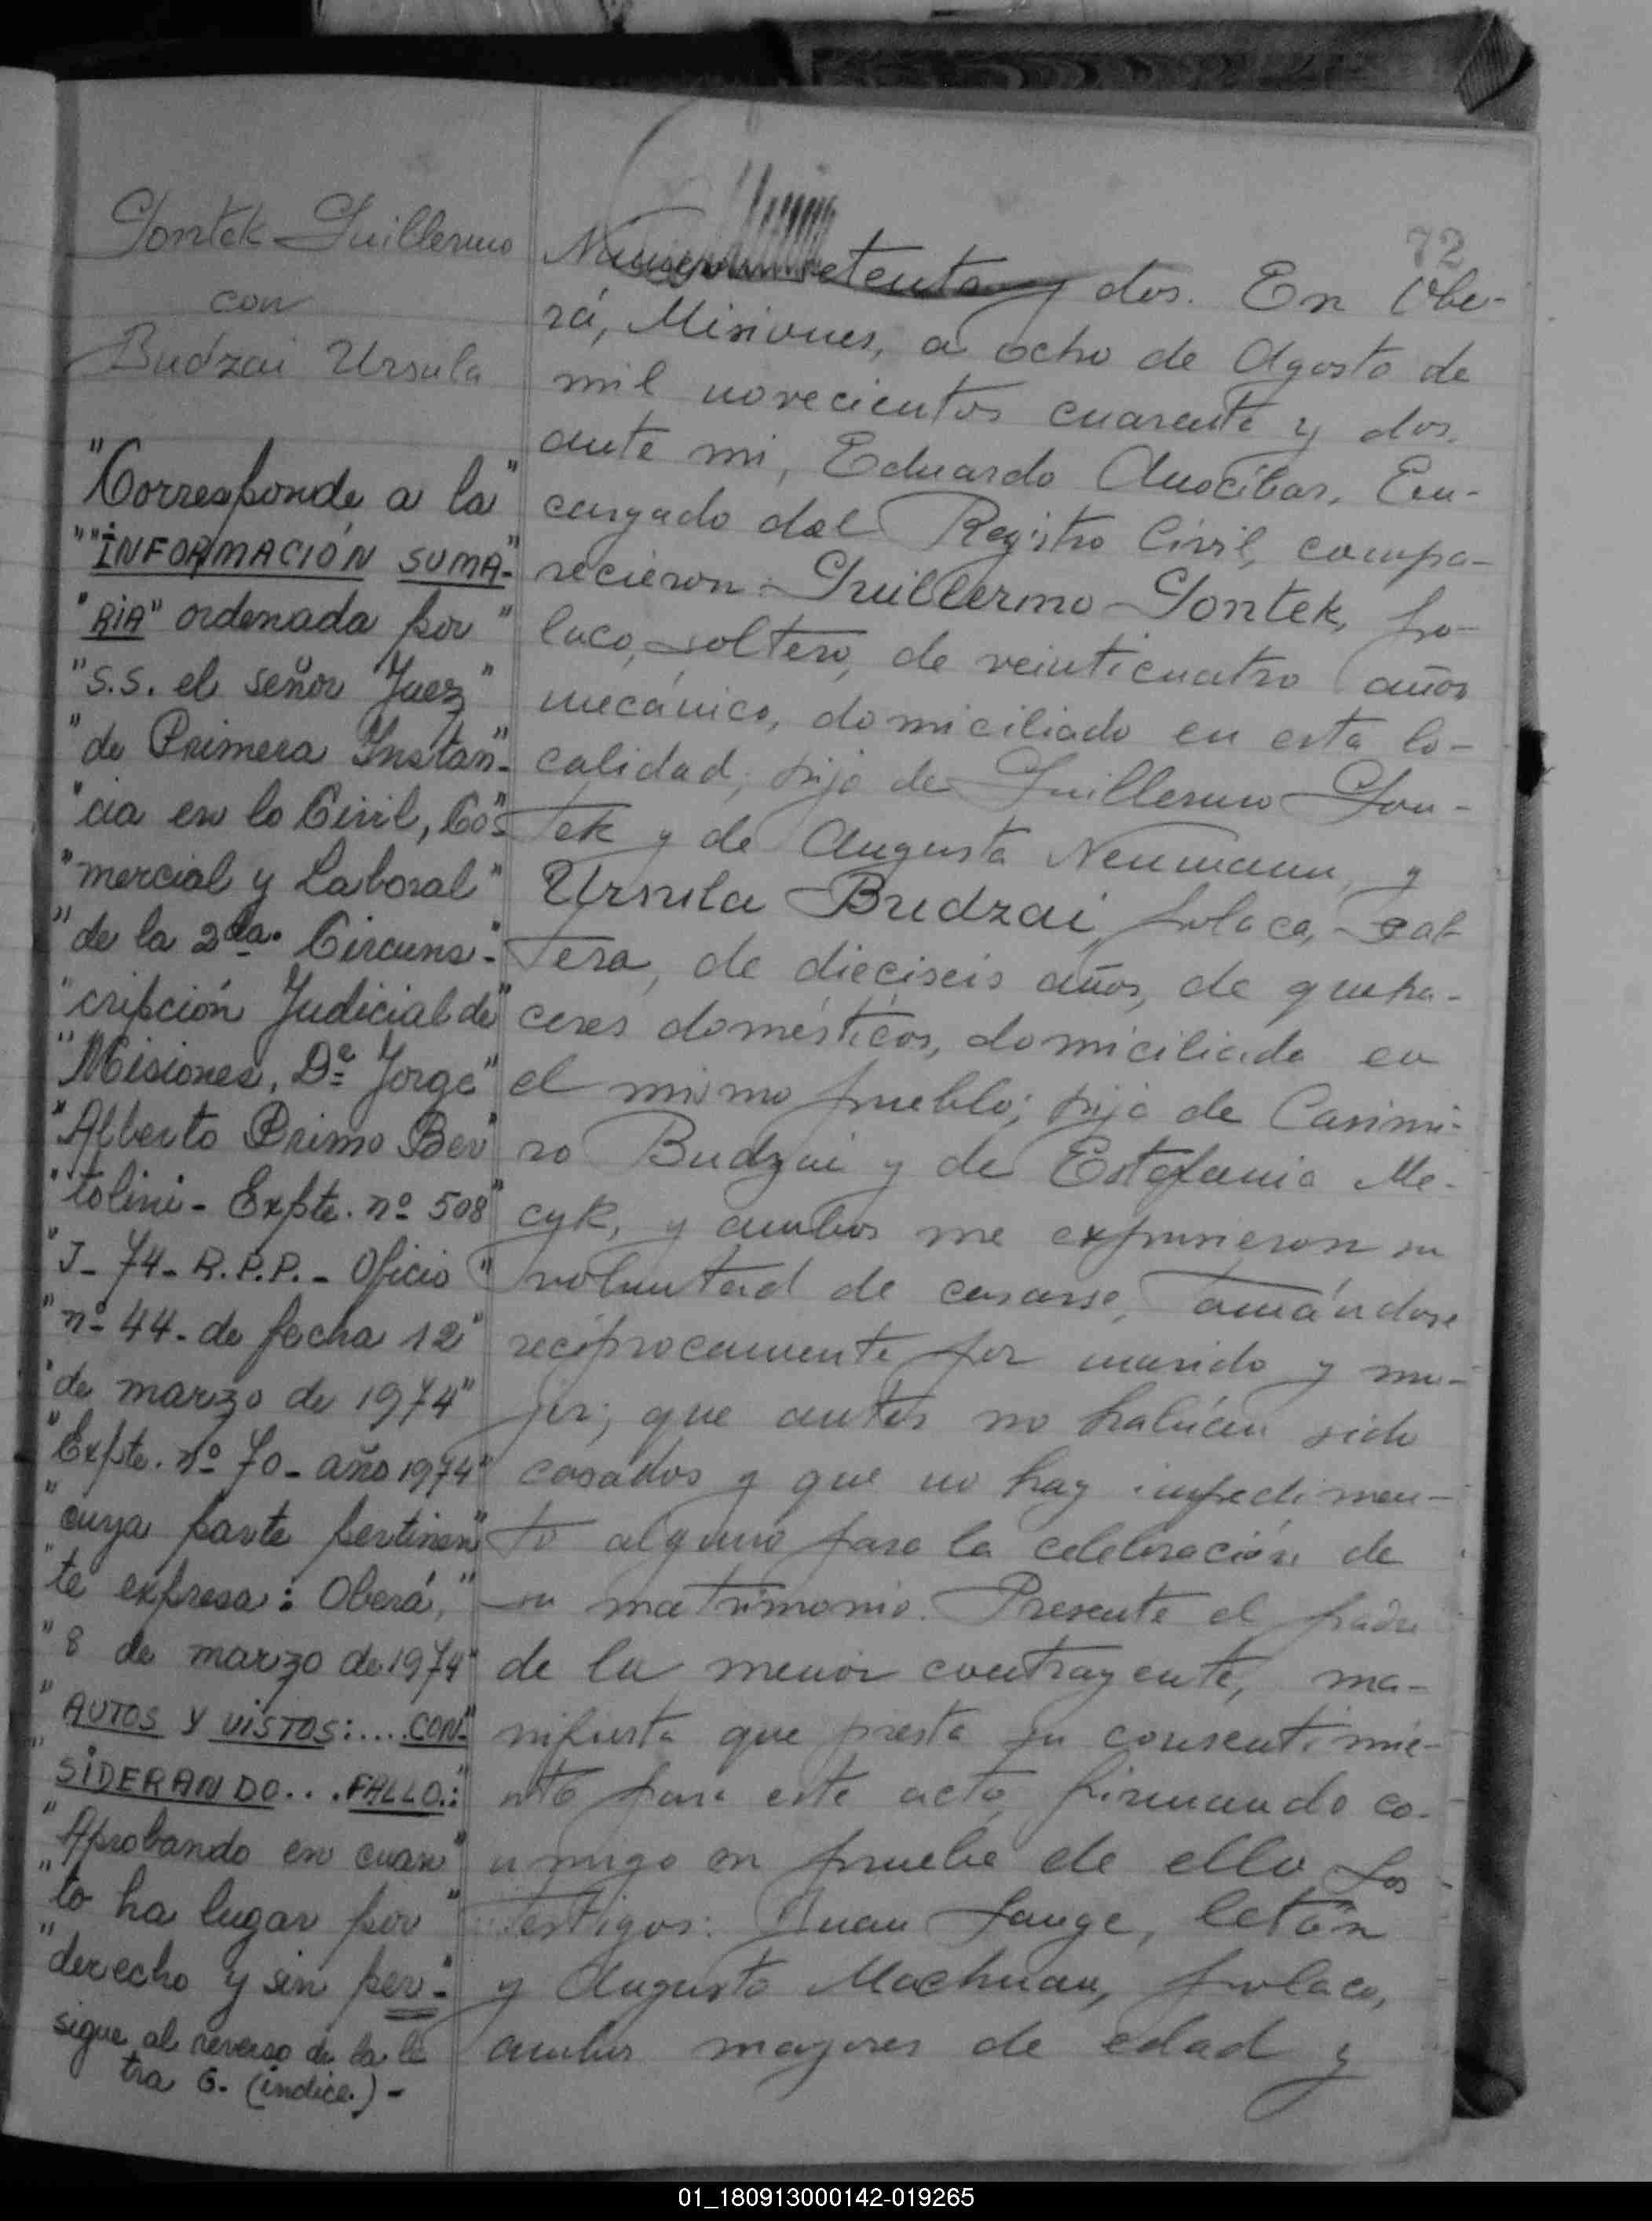 Gontek Guillermo
con
Budzai Ursula
"Corresponde a la"
""INFORMACIÓN SUMA-"
"RIA" ordenada por"
"S.S. el señor Juez"
"de Primera Instan-"
"cia en lo Civil, Co-"
"mercial y Laboral"
"de la 2da. Circuns-"
"cripción Judicial de"
"Misiones, Dr. Jorge"
"Alberto Primo Ber"
"tolini - Expte. nº 508"
"J- 74- R.P.P. - Oficio"
"nº 44- de fecha 12"
"de marzo de 1974"
"Expte. nº 70- año 1974"
"cuya parte pertinen"
"te expresa: Oberá,"
"8 de marzo de 1974"
"AUTOS Y VISTOS:....CON-"
"SIDERANDO... .FALLO.:"
"Aprobando en cuan"
"to ha lugar por"
"derecho y sin per-"
sigue al reverso de la le
tra G. (índice.) -
72
Número setenta y dos. En Obe-
rá, Misiones, a ocho de Agosto de
mil novecientos cuarenta y dos,
ante mi, Eduardo Anocíbar, En-
cargado del Registro Civil, compa-
recieron: Guillermo Gontek, po-
laco, soltero, de veinticuatro años
mecánico, domiciliado en esta lo-
calidad, hijo de Guillermo Gon-
tek y de Augusta Neumann, y
Ursula Budzai, polaca, sol-
tera, de dieciseis años, de queha-
ceres domésticos, domiciliada en
el mismo pueblo; hija de Casimi-
ro Budzai y de Estefania Me-
cyk, y ambos me expusieron su
voluntad de casarse, tomándose
reciprocamente por marido y mu-
jer; que antes no habían sido
casados y que no hay impedimen-
to alguno para la celebración de
su matrimonio. Presente el padre
de la menor contrayente, ma-
nifiesta que presta su consentimie-
nto para este acto, firmando co-
nmigo en prueba de ello. Los
testigos: Juan Lange, letón
y Augusto Machnan, polaco,
ambos mayores de edad y
01_180913000142-019265